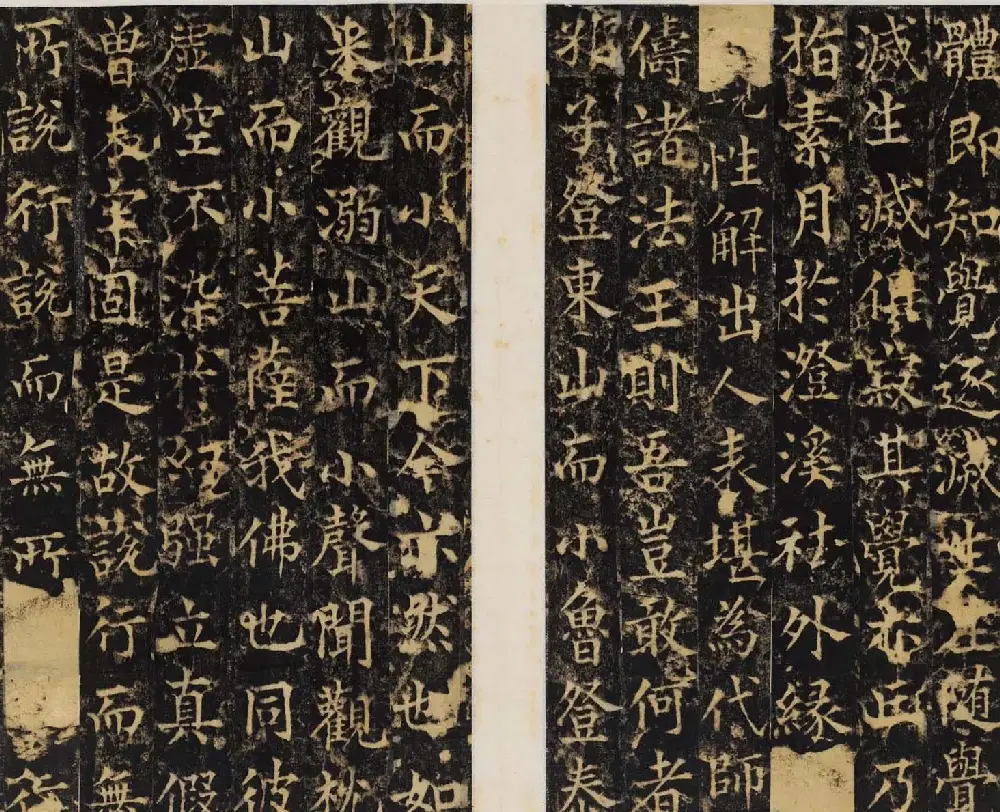 體即知覺逐滅生生随覺
滅生滅俱寂其覺亦正乃
指素月於澄溪祛外縁
性解出人表堪為代師
儔諸法王則吾豈敢何者
子登東山而小魯登泰
山而小天下今亦然也如
来觀溺山而小聲聞觀
山而小菩薩我佛也同彼
虚空不染於經强立真假
曾未定固是故說行而無
所說行說而無所行